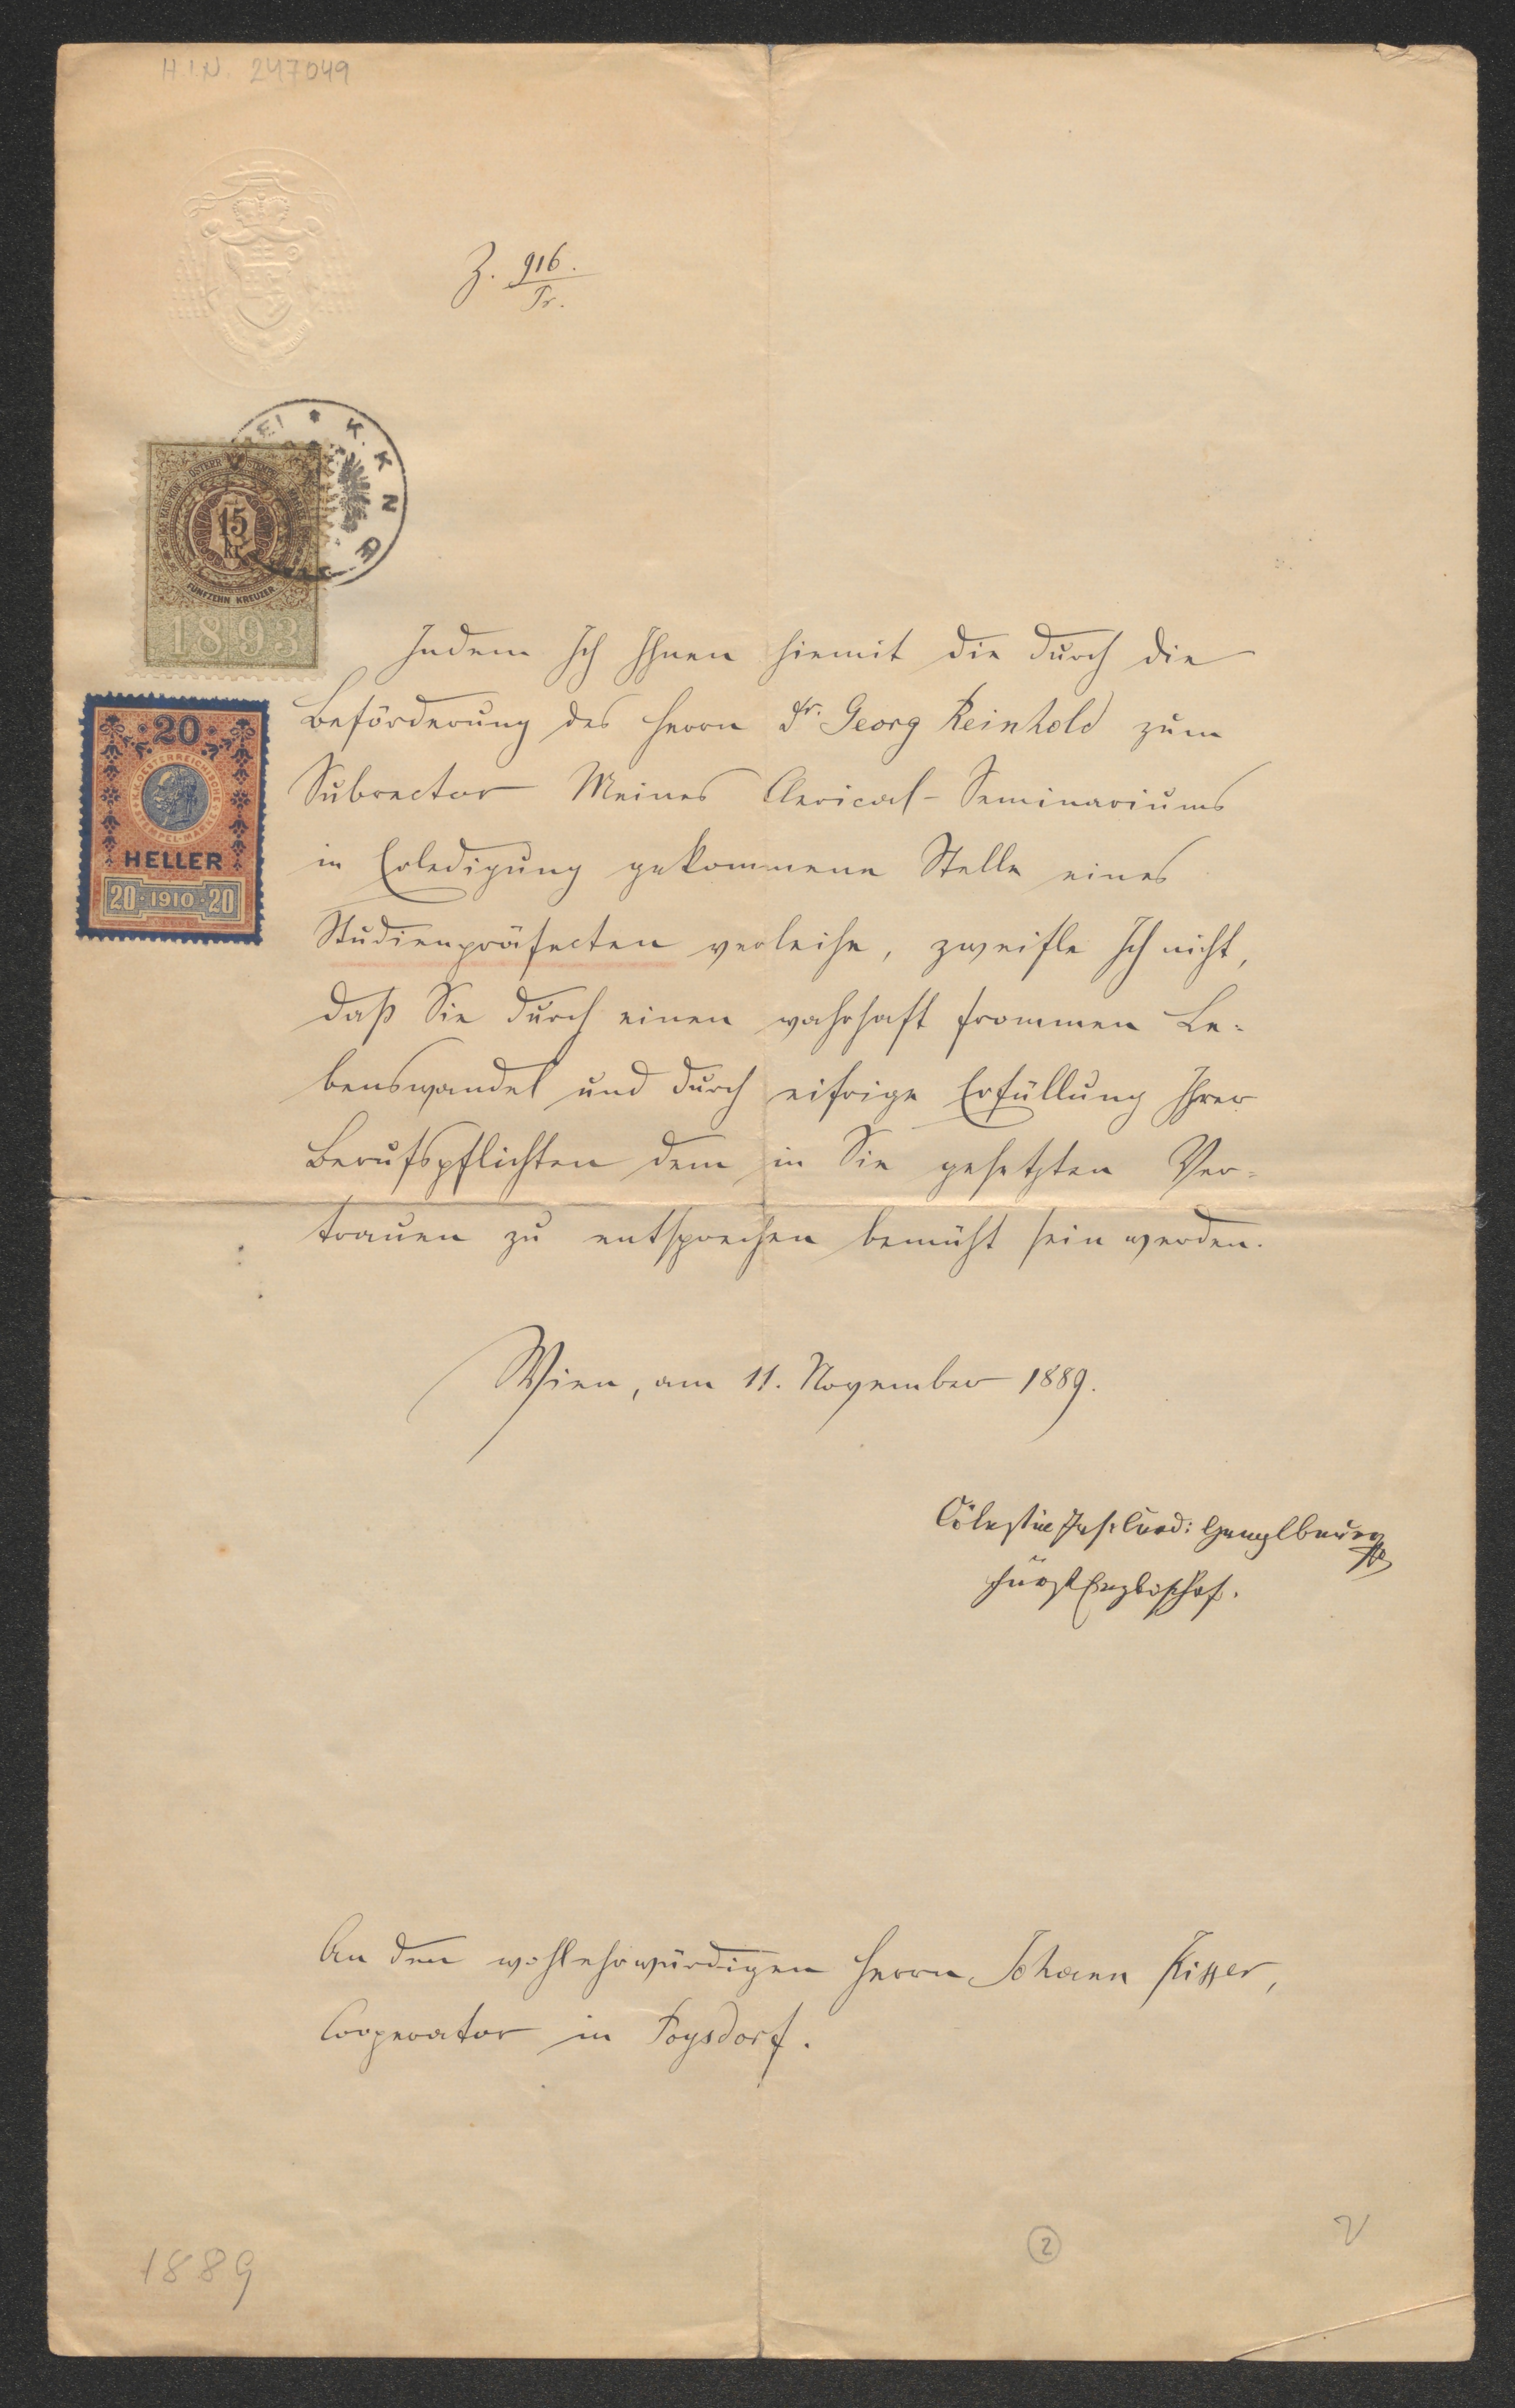 H.I.N. 247049
Z. 916./Pr.
EI * K. K. N
ÖSTERR
15
kr
FÜNFZEHN KREUZER
1893
20
K.K. OESTERREICHISCHE
STEMPEL-MARKE
HELLER
20 · 1910 · 20
Indem Ich Ihnen hiemit die durch die
Beförderung des Herrn Dr. Georg Reinhold zum
Subrector Meines Clerical-Seminariums
in Erledigung gekommene Stelle eines
Studienpräfecten verleihe, zweifle Ich nicht,
daß Sie durch einen wahrhaft frommen Le-
benswandel und durch eifrige Erfüllung Ihrer
Berufspflichten dem in Sie gesetzten Ver-
trauen zu entsprechen bemüht sein werden.
Wien, am 11. November 1889.
Cölestin Jos. Card: Ganglbauer
FürstErzbischof.
An den wohlehrwürdigen Herrn Johann
Cooperator in Poysdorf.
1889
2